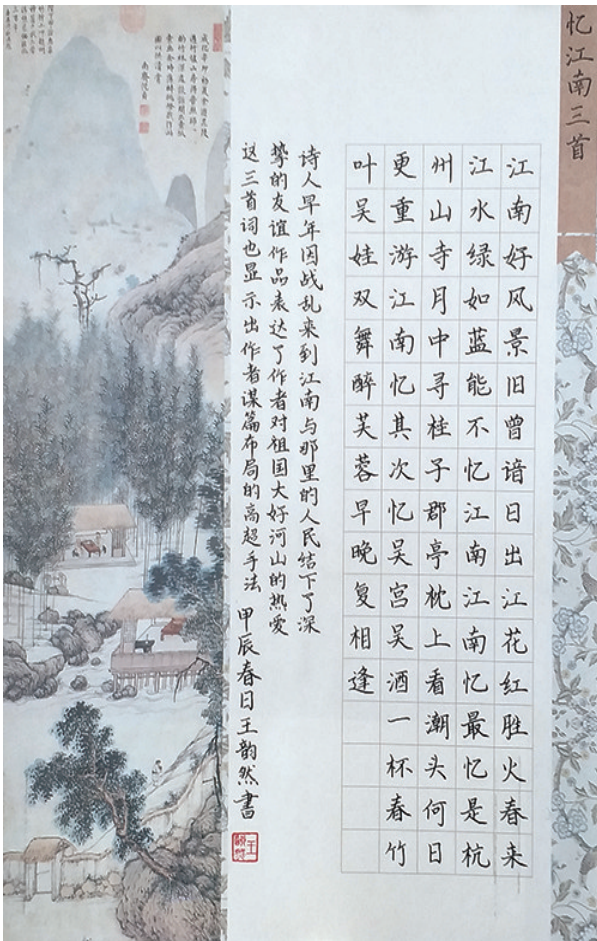 忆江南三首
江南好风景旧曾谙日出江花红胜火春来
江水绿如蓝能不忆江南江南忆最忆是杭
州山寺月中寻桂子郡亭枕上看潮头何日
更重游江南忆其次忆吴宫吴酒一杯春竹
叶吴娃双舞醉芙蓉早晚复相逢
诗人早年因战乱来到江南与那里的人民结下了深
挚的友谊作品表达了作者对祖国大好河山的热爱
这三首词也显示出作者谋篇布局的高超手法 甲辰春日王韵然書